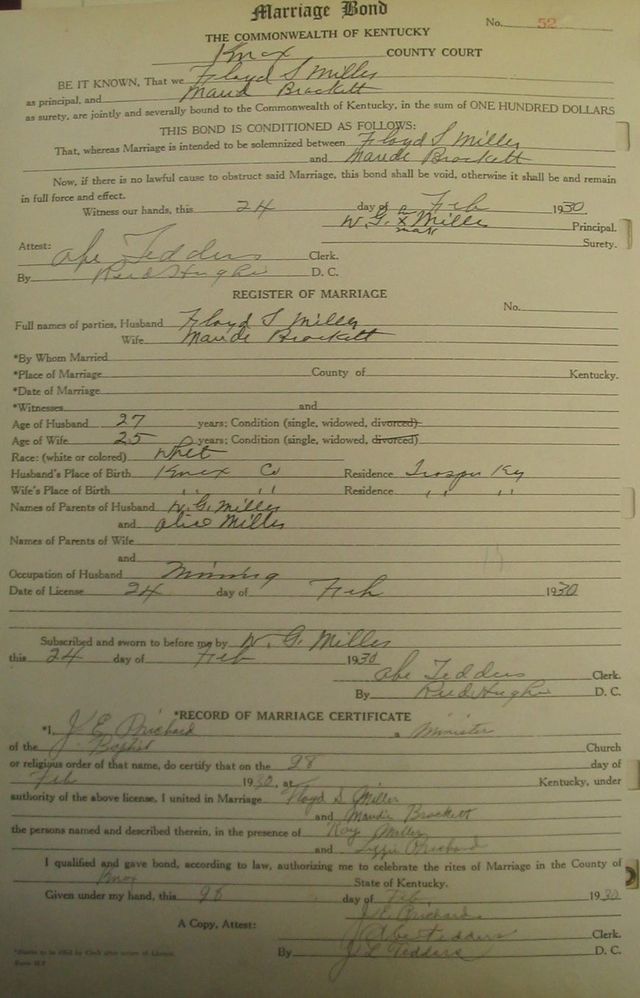 Marriage Bond
No. 52
THE COMMONWEALTH OF KENTUCKY
Knox COUNTY COURT
BE IT KNOWN, That we Floyd S Miller
as principal, and Maud Brockett
as surety, are jointly and severally bound to the Commonwealth of Kentucky, in the sum of ONE HUNDRED DOLLARS
THIS BOND IS CONDITIONED AS FOLLOWS:
That, whereas Marriage is intended to be solemnized between Floyd S Miller
and Maude Brockett
Now, if there is no lawful cause to obstruct said Marriage, this bond shall be void, otherwise it shall be and remain
in full force and effect.
Witness our hands, this 24 day of Feb 1930
W. G. x Miller Principal.
mark Surety.
Attest: Abe Tedders Clerk.
By Reed Hughes D. C.
REGISTER OF MARRIAGE
No.
Full names of parties, Husband Floyd S Miller
Wife Maude Brockett
*By Whom Married
*Place of Marriage County of Kentucky.
*Date of Marriage
*Witnesses and
Age of Husband 27 years; Condition (single, widowed, divorced)
Age of Wife 25 years; Condition (single, widowed, divorced)
Race: (white or colored) whit
Husband's Place of Birth Knox Co Residence Trosper Ky
Wife's Place of Birth " " Residence " "
Names of Parents of Husband W. G. Miller
and Alice Miller
Names of Parents of Wife
and
Occupation of Husband Mining
Date of License 24 day of Feb 1930
Subscribed and sworn to before me by W. G. Miller
this 24 day of Feb 1930
Abe Tedders Clerk.
By Reed Hughes D. C.
*RECORD OF MARRIAGE CERTIFICATE
*I, J. E. Prichard a Minister
of the Baptist Church
or religious order of that name, do certify that on the 28 day of
Feb 1930, at Kentucky, under
authority of the above license, I united in Marriage Floyd S. Miller
and Maudie Brockett
the persons named and described therein, in the presence of Roy Miller
and Lizzie Prichard
I qualified and gave bond, according to law, authorizing me to celebrate the rites of Marriage in the County of
Knox State of Kentucky.
Given under my hand, this 28 day of Feb. 1930
J. E. Prichard
A Copy, Attest: Abe Tedders Clerk.
By J L Tedders D. C.